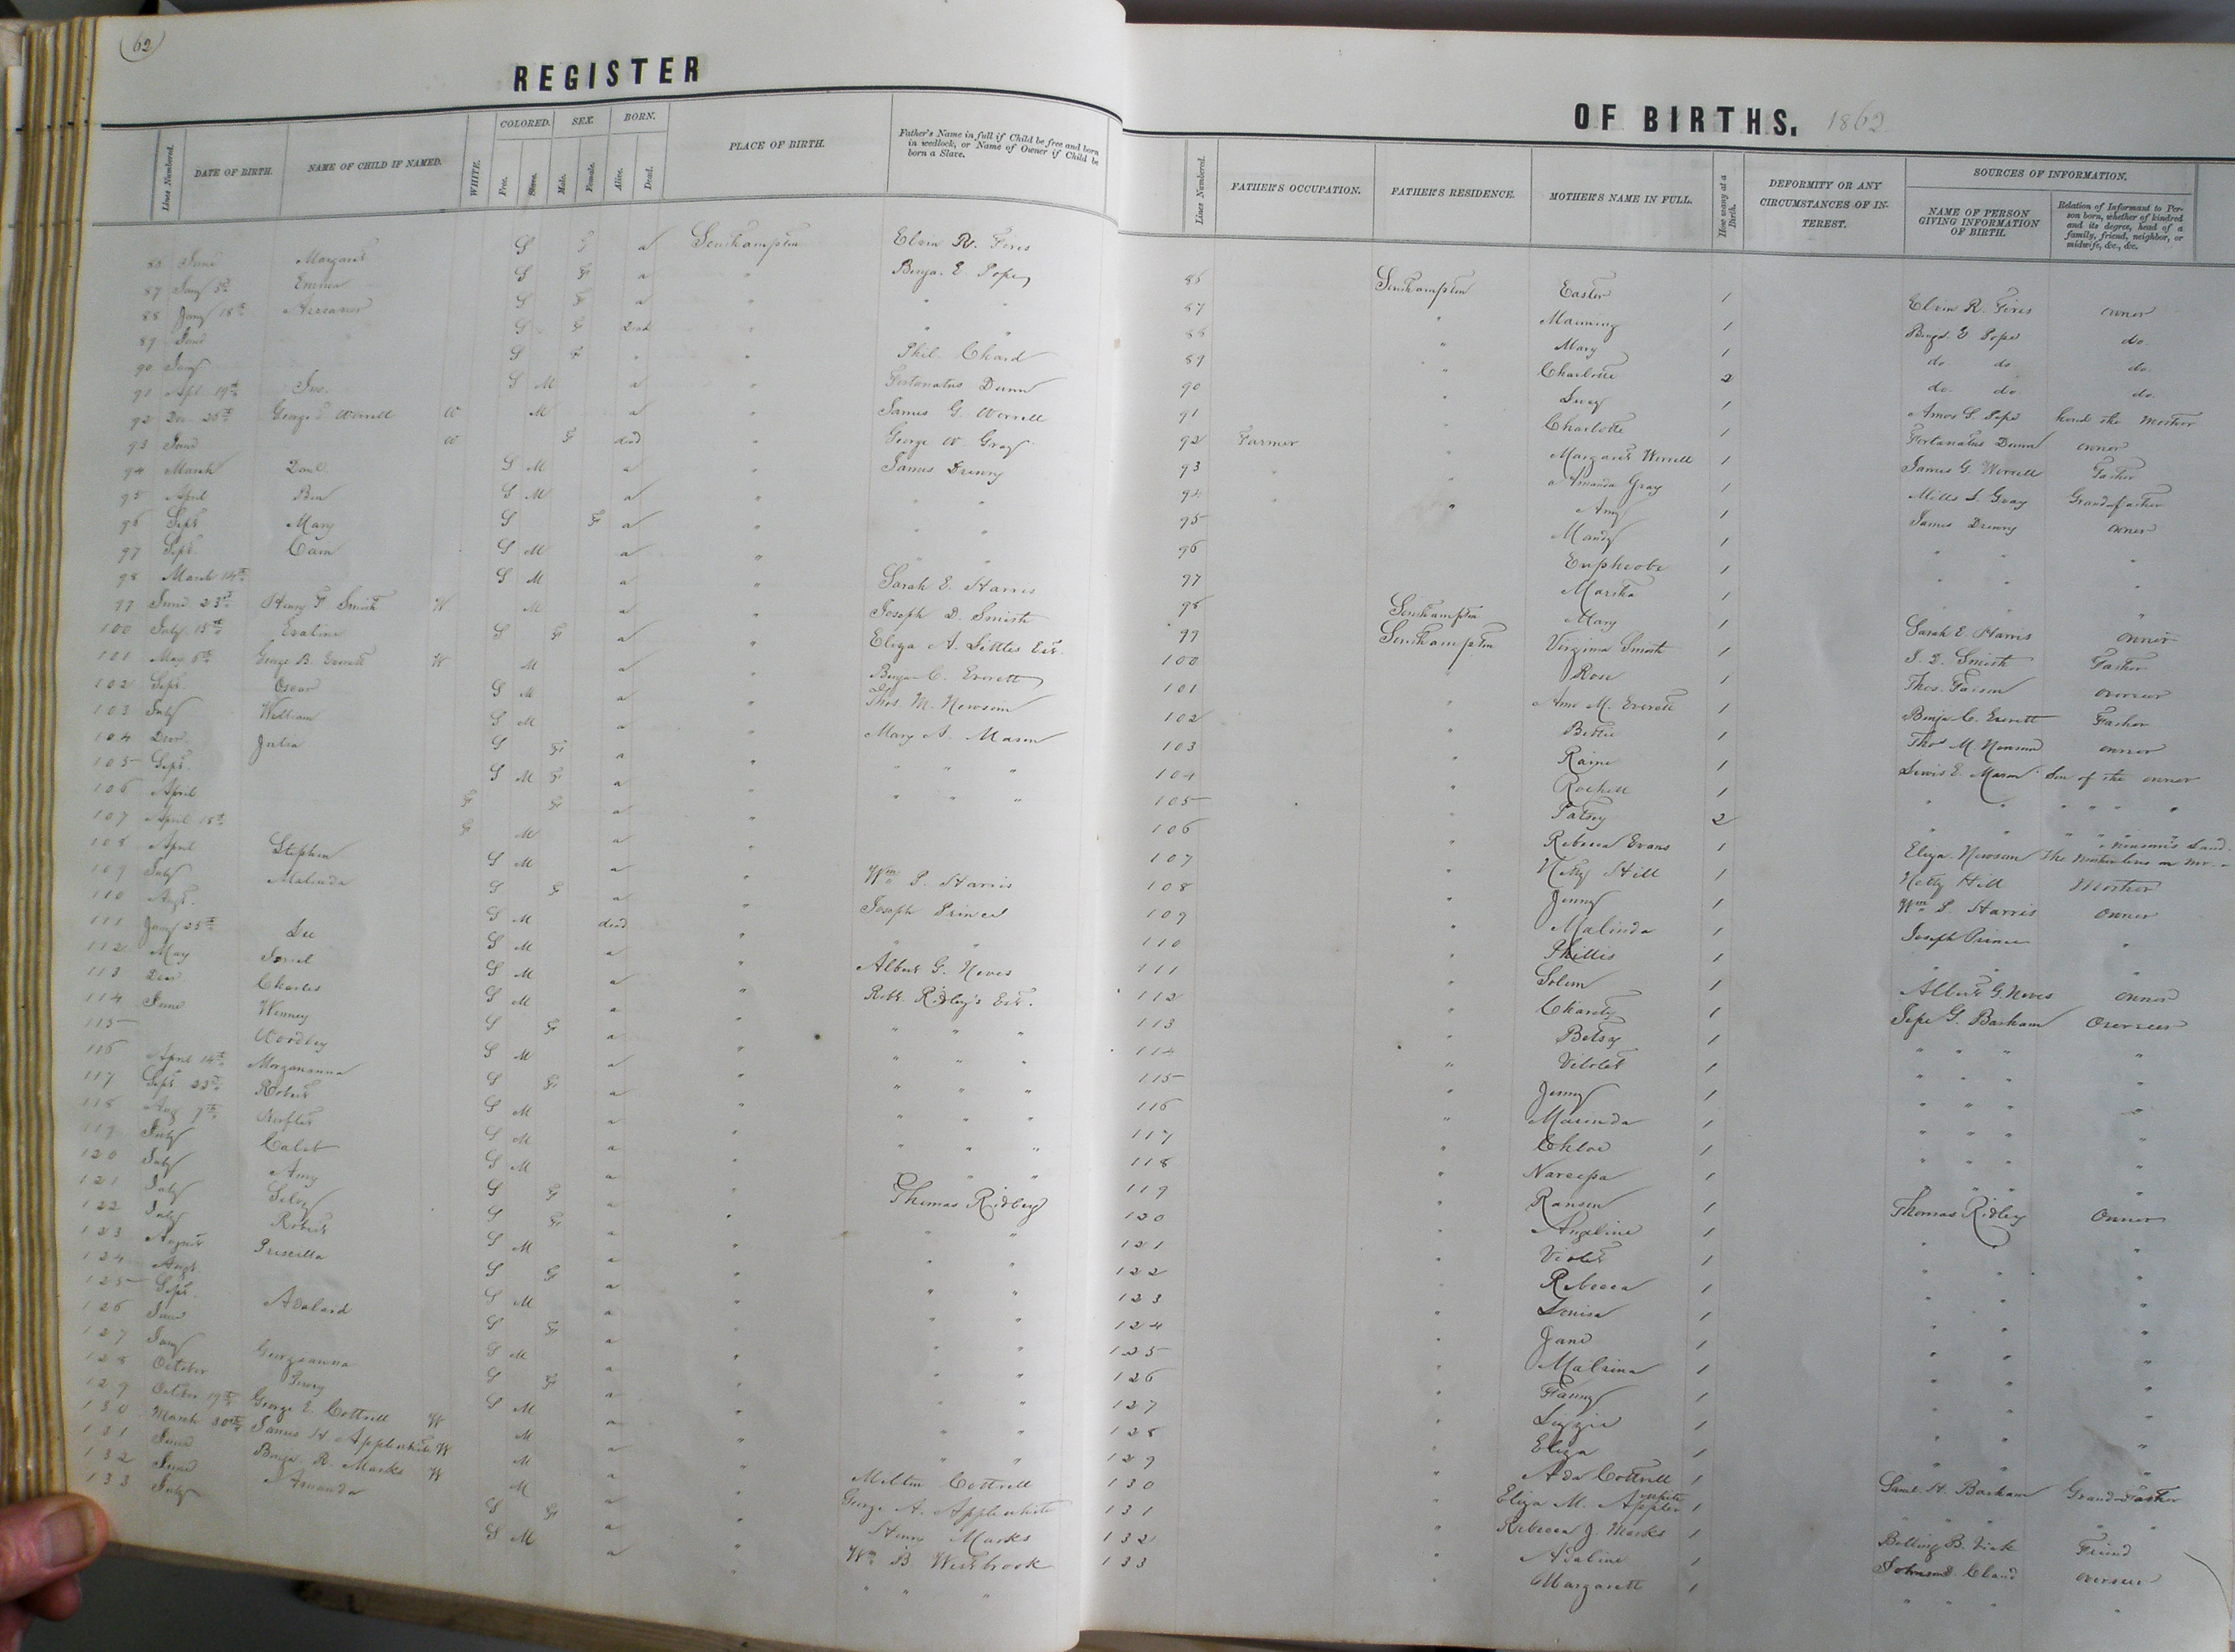 62
REGISTER
Lines Numbered. DATE OF BIRTH. NAME OF CHILD IF NAMED. WHITE. COLORED. Free. Slave. SEX. Male. Female. BORN. Alive. Dead. PLACE OF BIRTH. Father's Name in full if Child be free and born in wedlock, or Name of Owner if Child be born a Slave.
86 June Margaret S F a Southampton Elvin R.
87 Jany 5th Emma S F a " Benja. E. Pope
88 Jany 18th S F a " " "
89 June S F Dead " " "
90 Jany S F " " Phil. Chard
91 Apl. 19th Jno. S M a " Fortunatus Dunn
92 Dec 25th George T Worrell W M a " James G. Worrell
93 June W F dead " George W Gray
94 March Paul S M a " James Drewry
95 April Ben S M a " " "
96 Sept Mary S F a " " "
97 Sept Cain S M a " " "
98 March 14th S M a " Sarah E. Harris
99 June 23rd Henry F Smith W M a " Joseph D. Smith
100 July 15th Evaline S F a " Eliza A. Littles Est.
101 May 5th George B. Everett W M a " Benja C. Everett
102 Sept Oscar S M a " Thos. M. Newsom
103 July William S M a " Mary A. Mason
104 Decr Julia S F a " " " "
105 Sept. S M F a " " " "
106 April F F a "
107 April 15th F M a "
108 April Stephen S M a " Wm P. Harris
109 July Malinda S F a " Joseph Prince
110 Augt. S M dead " " "
111 Jany 25th Lee S M a " Albert G. Neves
112 May Israel S M a " Robt. Ridley's Est.
113 Decr Charles S M a " " " "
114 June Winney S F a " " " "
115 Wordley S M a " " " "
116 April 14th Morgananna S F a " " " "
117 Sept 23rd Robert S M a " " " "
118 Aug 7th S M a " " " "
119 July Caleb S M a
120 July Amy S F a " Thomas Ridley
121 July Silvy S F a " " "
122 July Robert S M a " " "
123 August Priscilla S F a " " "
124 Augt S M a " " "
125 Sept. S F a " " "
126 June Adalard S M a " " "
127 Jany S F a " " "
128 October Georgianna S M a " " "
Perry
129 October 19th George E. Cottrell W M a Milton Cottrell
130 March 30th James H Applewhite W M a George A. Applewhite
131 June Benja R. Marks W M a Henry Marks
132 June Amanda S F a " Wm B. Westbrook
133 July S M a " " "
OF BIRTHS. 1862
Lines Numbered. FATHER'S OCCUPATION. FATHER'S RESIDENCE. MOTHER'S NAME IN FULL. How many at a Birth. DEFORMITY OR ANY CIRCUMSTANCES OF INTEREST. SOURCES OF INFORMATION. NAME OF PERSON GIVING INFORMATION OF BIRTH. Relation of Informant to Person born, whether of kindred and its degree, head of a family, friend, neighbor, or midwife, &c., &c.
86 Southampton Easter 1 Elvin R. owner
87 " Manning 1 Benja. E Pope do.
88 " Mary 1 do. do. do.
89 " Charlotte 2 do. do. do.
90 " Lucy 1 Amos S. Pope hired the Mother
91 " Charlotte 1 Fortunatus Dunn owner
92 Farmer " Margaret Worrell 1 James G. Worrell Father
93 " " Amanda Gray 1 Mills S. Gray Grandfather
94 " " Amy 1 James Drewry owner
95 Mandy 1 " " "
96 1 " " "
97 Martha 1 " " "
98 Southampton Mary 1 Sarah E. Harris owner
99 Southampton Virginia Smith 1 J. D. Smith Father
100 " Rose 1 Thos. Faison overseer
101 " Ann M. Everett 1 Benja C. Everett Father
102 " Bettie 1 Thos M. Newsom owner
103 " Raine 1 Lewis E. Mason Son of the owner
104 " Rochell 1 " " " " " "
105 " Patsey 2 " " " " "
106 " Rebecca Evans 1 Eliza Newsom The Mother lives on Mr. Newsom's Land.
107 " Netty Hill 1 Netty Hill Mother
108 " Jenny 1 Wm P. Harris owner
109 " Malinda 1 Joseph Prince "
110 " Phillis 1 " " "
111 " Solem 1 Albert G. Neves owner
112 " Charity 1 G. Barham Overseer
113 " Betsy 1 " " " "
114 " Vilolet 1 " " " "
115 " Jenny 1 " " " "
116 " Marinda 1 " " " "
117 " Chloe 1 " " " "
118 " Narcissa 1 " " " "
119 " Ransen 1 Thomas Ridley Owner
120 " Angeline 1 " " "
121 " Violet 1 " " "
122 " Rebecca 1 " " "
123 " Louisa 1 " " "
124 " Jane 1 " " "
125 " Malvina 1 " " "
126 " Fanny 1 " " "
127 " Lizzie 1 " " "
128 " Eliza 1 " " "
129 " Ada Cottrell 1 Saml. H. Barham Grand-Father
130 " Eliza M. Applewhite 1 " " "
131 " Rebecca J. Marks 1 Bolling B. Vick Friend
132 " Adaline 1 Cland overseer
133 " Margarett 1 " " "